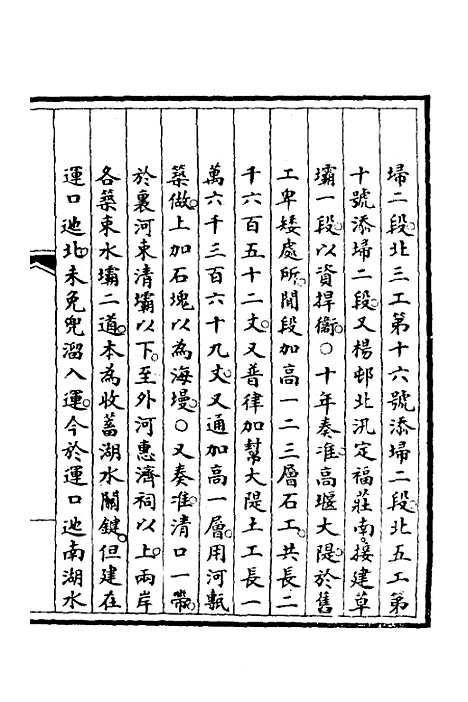 埽二段。北三工第十六號添埽二段。北五工第
十號添埽二段。又楊邨北汛定福莊南。接建草
壩一段。以資捍衞。○十年奏准。高堰大隄。於舊
工卑矮處所。閒段加高一二三層石工。共長二
千六百五十二丈。又普律加幫大隄土工長一
萬六千三百六十九丈。又通加高一層。用河甎
築做。上加石塊以為海墁。○又奏准。清口一帶。
於裏河東清壩以下。至外河惠濟祠以上。兩岸
各築束水壩二道。本為收蓄湖水關鍵。但建在
運口迆北。未免兜溜入運。今於運口迆南湖水